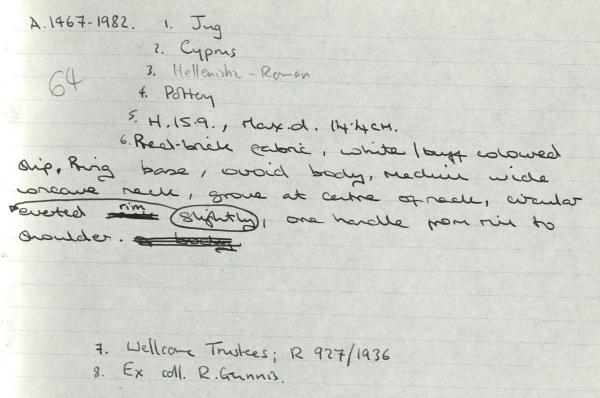 A.1467-1982. 1. Jug
2. Cyprus
3. Hellenistic-Roman
64
4. Pottery
5. H.15.9., Max.d. 14.4cm.
6. Red-brick fabric, white/buff coloured
slip, Ring base, ovoid body, medium wide
concave neck, groove at centre of neck, circular
everted rim slightly, one handle from rim to
shoulder.
7. Wellcome Trustees; R 927/1936
8. Ex coll. R.Gunnis.